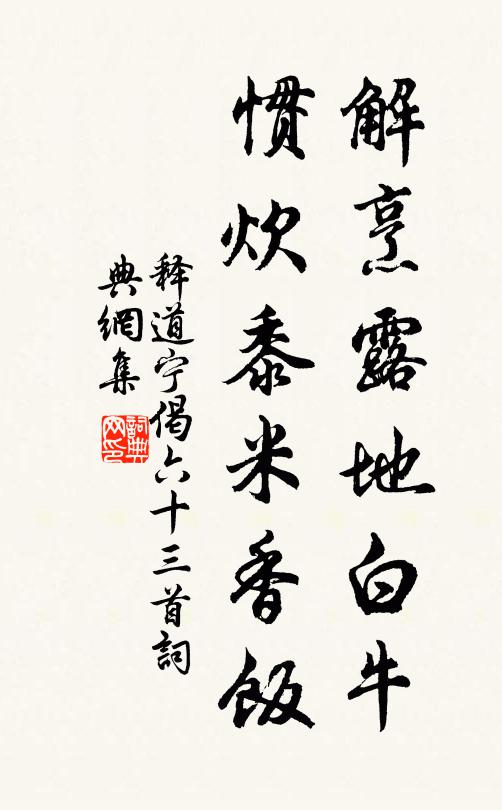 解烹露地白牛
惯炊黍米香饭
释道宁偈六十三首詞
典網集
詞典网印